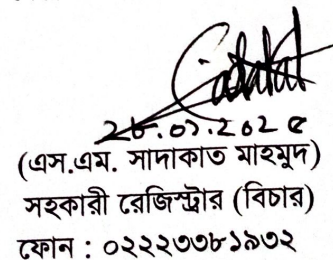 ২৮.০১.২০২৫
(এস.এম. সাদাকাত মাহমুদ)
সহকারী রেজিস্ট্রার (বিচার)
ফোন : ০২২২৩৩৮১৯৩২